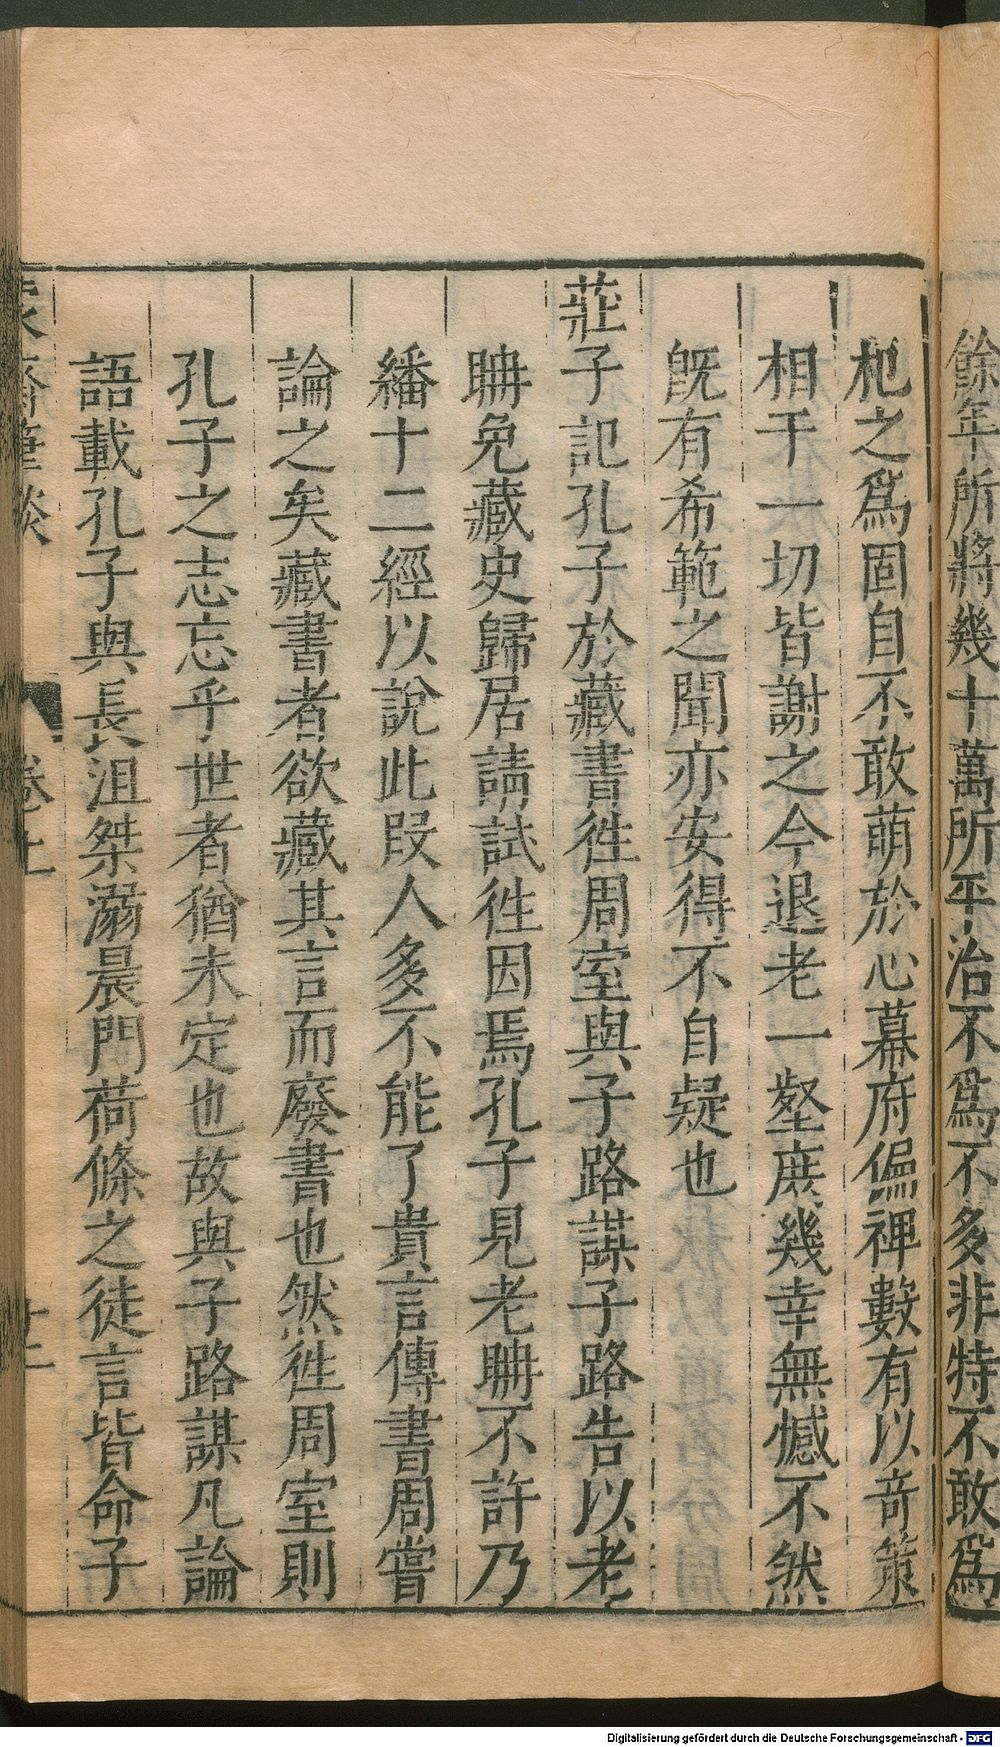 餘年所將幾十萬所平治不爲不多非特不敢爲
杝之爲固自不敢萌於心幕府偏裨數有以竒策
相干一切皆謝之今退老一壑庶幾幸無憾不然
旣有希範之聞亦安得不自疑也
莊子記孔子於藏書徃周室與子路謀子路告以老
聃免藏史歸居請試徃因焉孔子見老聃不許乃
繙十二經以說此叚人多不能了貴言傳書周嘗
論之矣藏書者欲藏其言而廢書也然徃周室則
孔子之志忘乎世者猶未定也故與子路謀凡論
語載孔子與長沮桀溺晨門荷條之徒言皆命子
蒙齋筆談 卷上 廿二
Digitalisierung gefördert durch die Deutsche Forschungsgemeinschaft - DFG